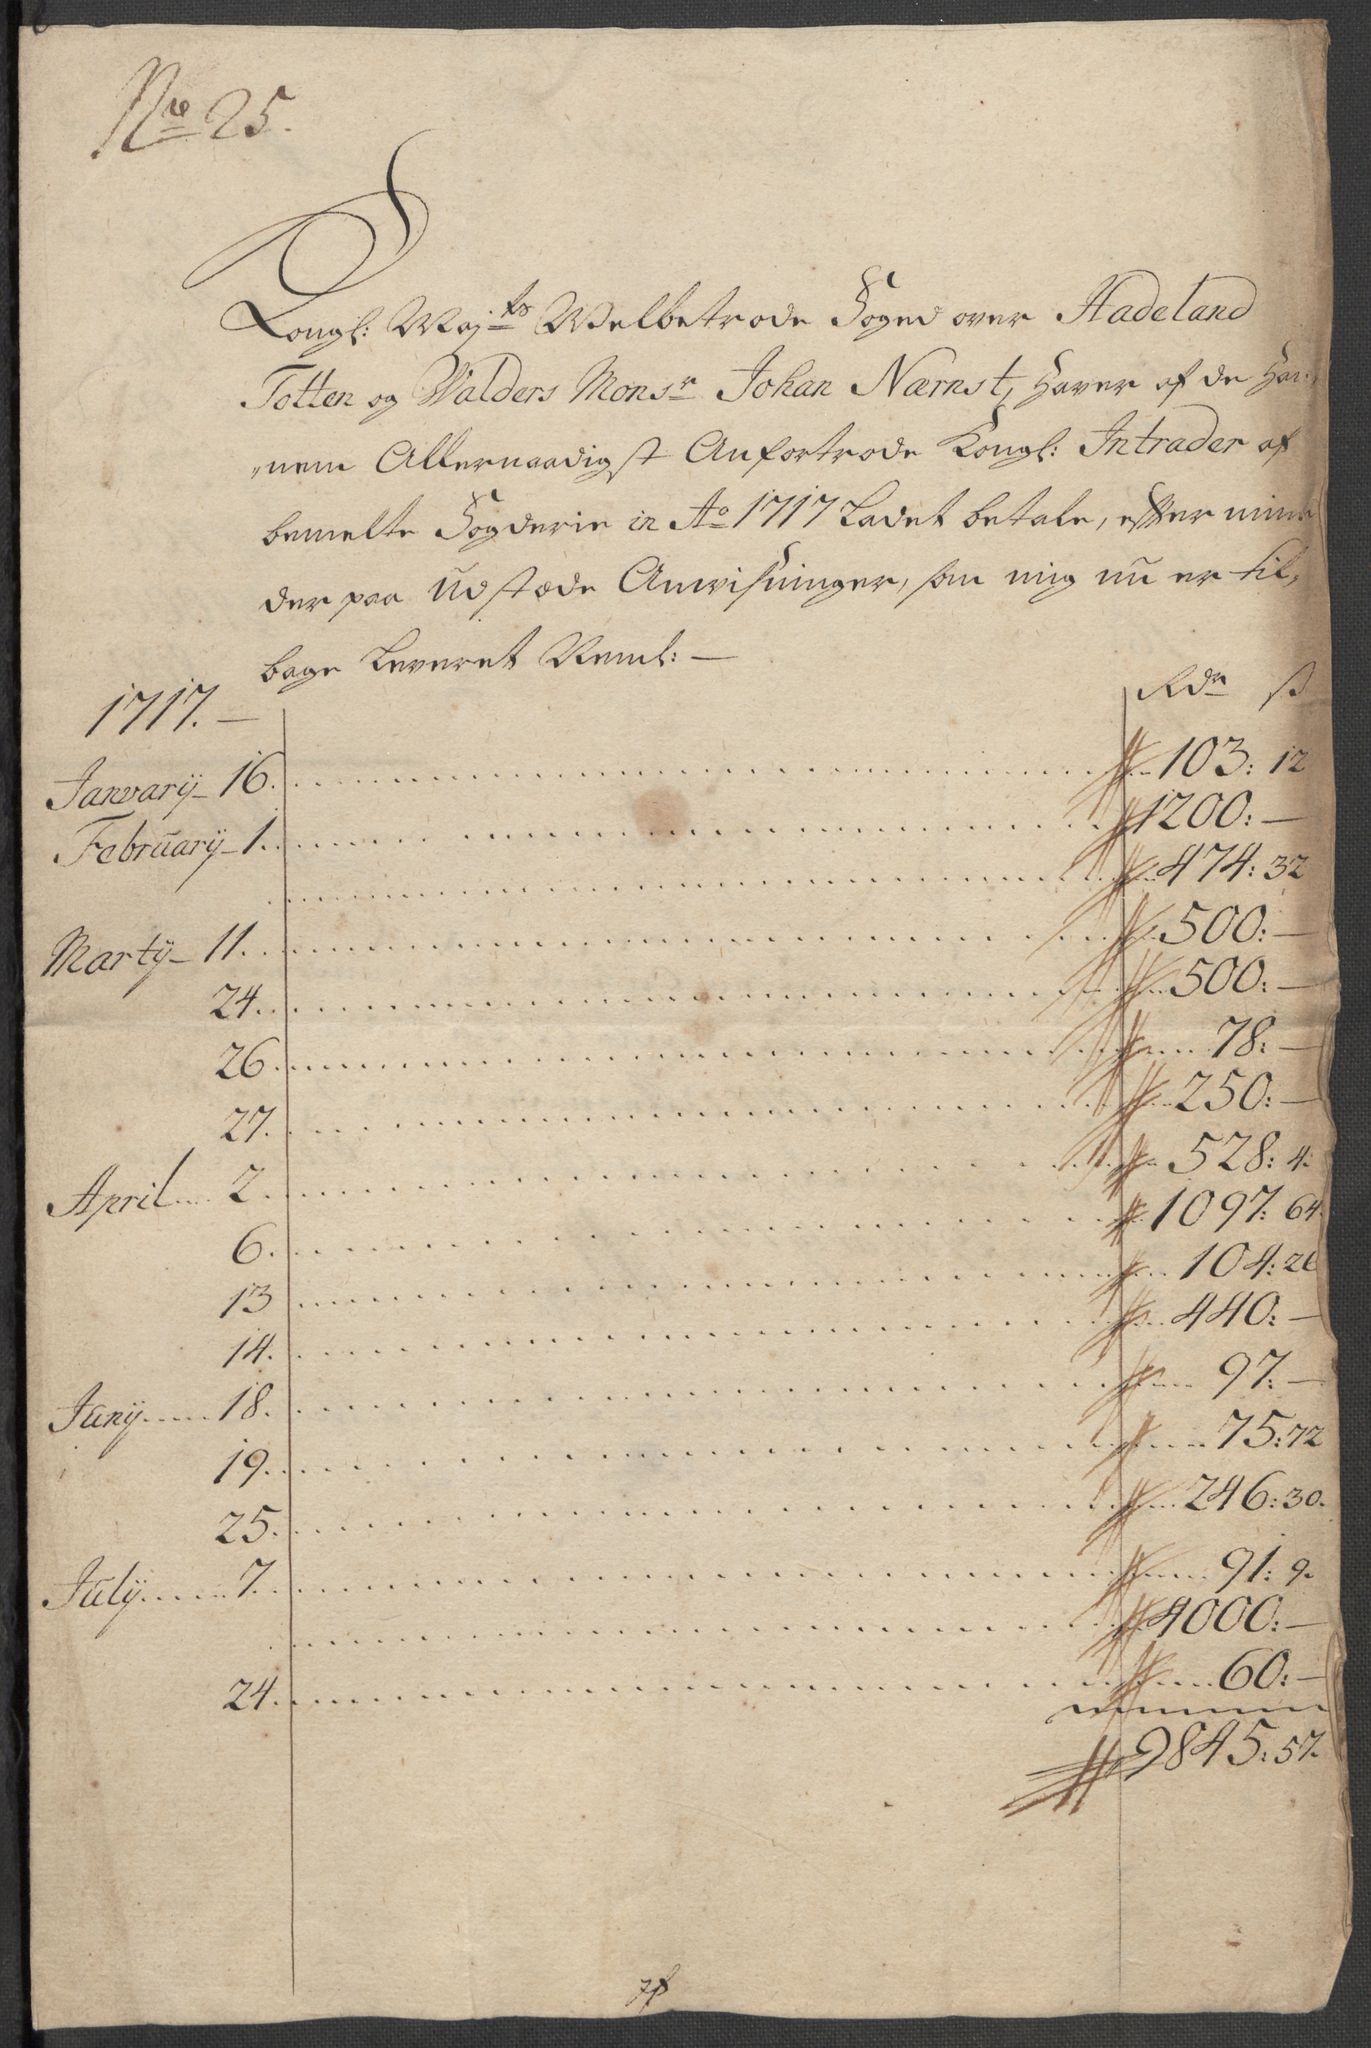 No 25.
Kongl: Maj ts Welbetrode Foged over Hadeland
Totten og Walders Monsr Johan Nærnst, haver af de Han,,
,,nem Allernaadigst Anfortrode Kongl: Intrader af
bemelte Fogderie in Ao 1717 Ladet betale, efter mine
der paa udstæde Anvisninger, som mig nu er til,,
bage Leveret Neml: —
1717. — Rdr ß
Januarÿ 16. 103: 12
Februarÿ 1. 1200: —
474: 32
Martÿ 11. 500: —
24. 500: —
26. 78: —
27. 250: —
April 2. 528: 4.
6. 1097: 64.
13 104: 26
14. 440: —
Junÿ 18. 97: —
19. 75: 72
25. 246: 30.
Julÿ 7. 91: 9.
4000: —
24. 60: —
9845: 57.